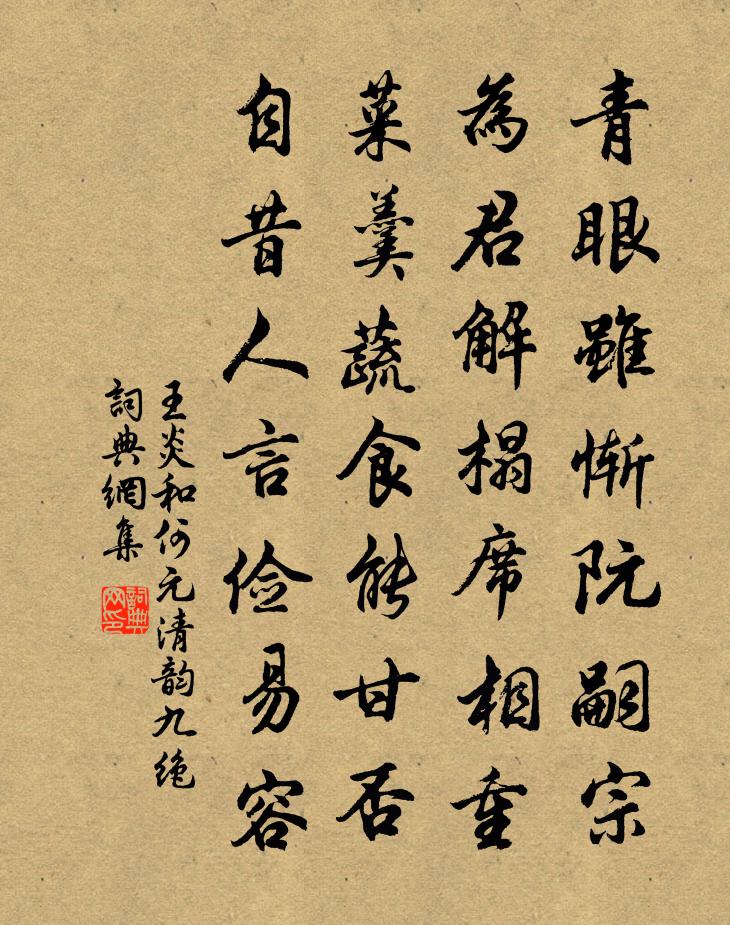 青眼雖慚阮嗣宗
為君解榻席相重
菜羹蔬食能甘否
自昔人言儉易容
王炎和何元清韵九绝
詞典網集
詞典网印